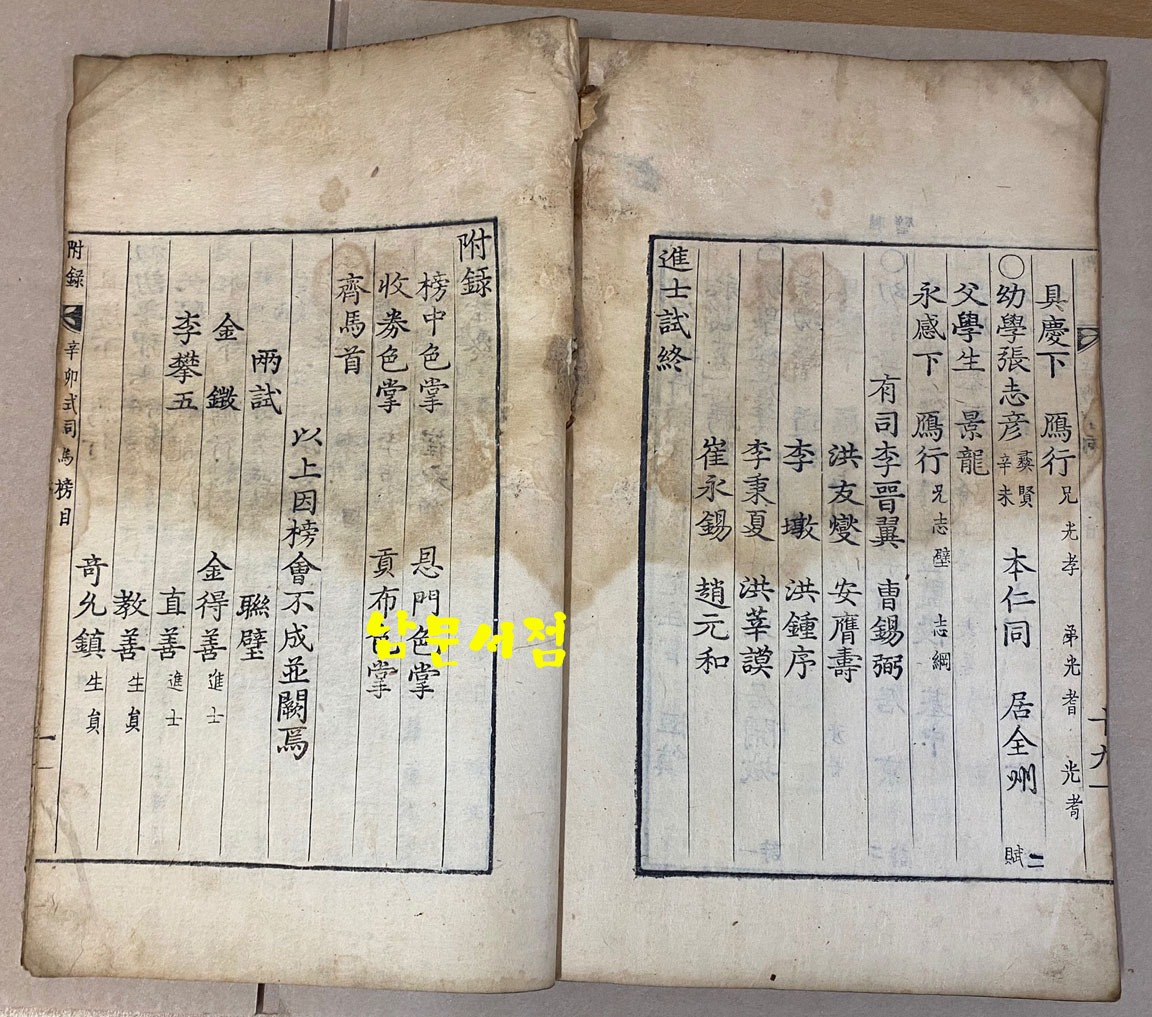 具慶下 鴈行 兄光孝 弟光耆 光耉
○幼學張志彦 彛賢 辛未 本仁同 居全州 賦二
父學生 景龍
永感下 鴈行 兄志璧 志綱
有司李晉翼 曹錫弼
洪友燮 安膺壽
李墩 洪鍾序
李秉夏 洪華謨
崔永錫 趙元和
進士試終
附録
榜中色掌 恳門色掌
收券色掌 貢布色掌
齊馬首
以上因榜會不成並闕焉
兩試 聯璧
金 金得善 進士
李攀五 直善 進士
教善 生員
奇允鎮 生員
附録 辛卯式司馬榜目 一
남문서점